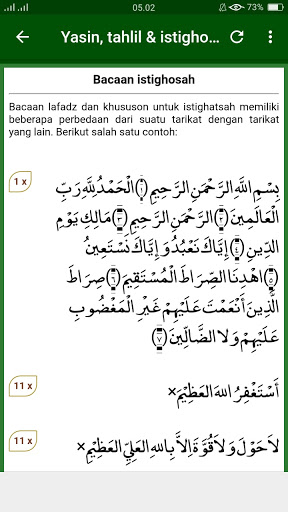 05.02
73%
Yasin, tahlil & istigho...
Bacaan istighosah
Bacaan lafadz dan khususon untuk istighatsah memiliki
beberapa perbedaan dari suatu tarikat dengan tarikat
yang lain. Berikut salah satu contoh:
1 x
بِسْمِ اللَّهِ الرَّحْمَنِ الرَّحِيمِ ﴿١﴾ الْحَمْدُ لِلَّهِ رَبِّ
الْعَالَمِينَ ﴿٢﴾ الرَّحْمَنِ الرَّحِيمِ ﴿٣﴾ مَالِكِ يَوْمِ
الدِّينِ ﴿٤﴾ إِيَّاكَ نَعْبُدُ وَإِيَّاكَ نَسْتَعِينُ
﴿٥﴾ اهْدِنَا الصِّرَاطَ الْمُسْتَقِيمَ ﴿٦﴾ صِرَاطَ
الَّذِينَ أَنْعَمْتَ عَلَيْهِمْ غَيْرِ الْمَغْضُوبِ
عَلَيْهِمْ وَلَا الضَّالِّينَ ﴿٧﴾
11 x
أَسْتَغْفِرُ اللهَ الْعَظِيْمَ×
11 x
لاَحَوْلَ وَلاَ قُوَّةَ إِلاَّ بِاللهِ الْعَلِيِّ الْعَظِيْمِ×